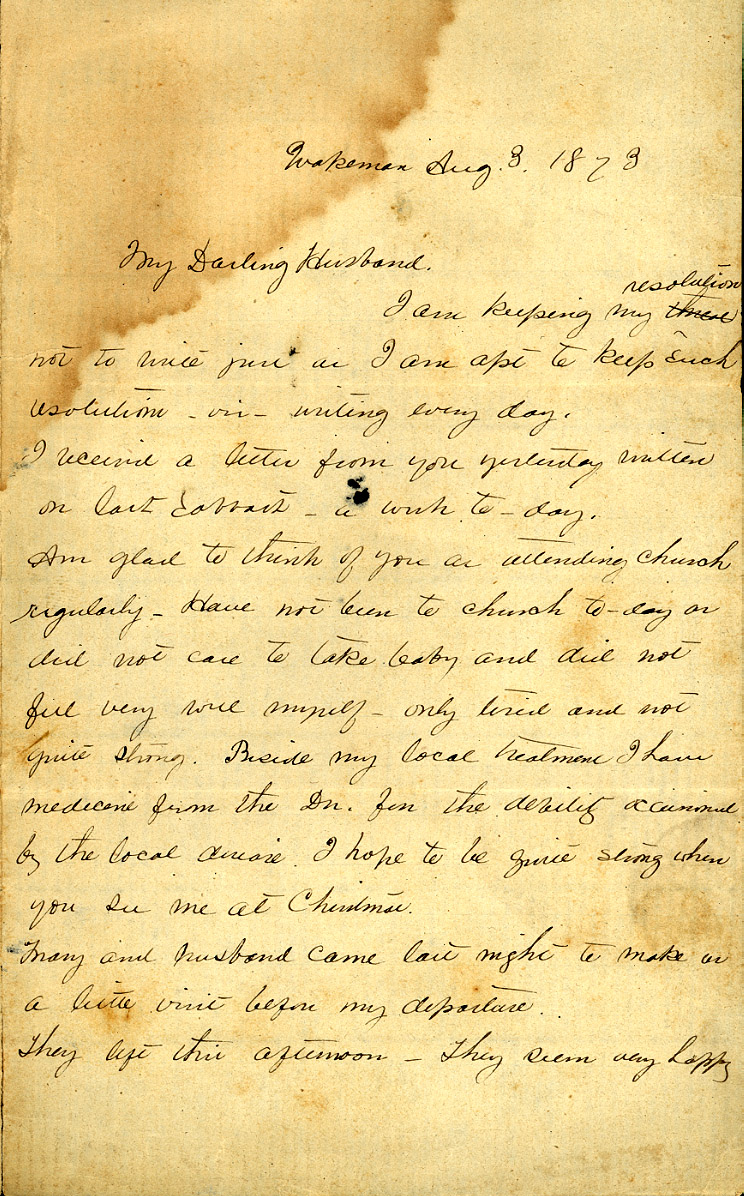 Wakeman Aug. 3. 1873
My Darling Husband.
resolution
I am keeping my
not to write just as I am apt to keep such
resolutions - viz - writing every day.
I received a letter from you yesterday written
on last Sabbath - a week to-day.
Am glad to think of you as attending church
regularly - Have not been to church to-day as
did not care to take baby and did not
feel very well myself - only tired and not
quite strong. Beside my local treatment I have
medicine from the Dr. for the debility occasioned
by the local disease. I hope to be quite strong when
you see me at Christmas.
Mary and husband came last night to make us
a little visit before my departure.
They left this afternoon - They seem very happy